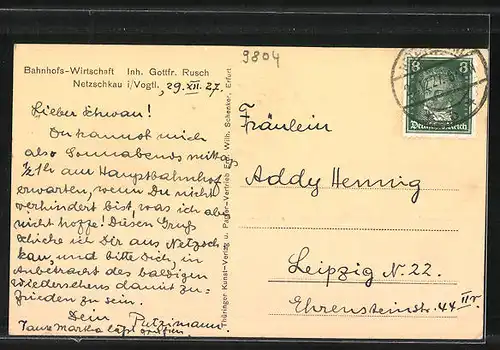 9804
Bahnhofs-Wirtschaft Inh. Gottfr. Rusch
Netzschkau i/Vogtl., 29.XII.27.
Lieber Schwan!
Du kannst mich
also Sonnabends mittag
½1h am Hauptbahnhof
erwarten, wenn Du nicht
verhindert bist, was ich aber
nicht hoffe! Diesen Gruß
schicke ich Dir aus Netzsch-
kau, und bitte Dich, in
Anbetracht des baldigen
Wiedersehens damit zu-
frieden zu sein.
Dein Putzimann.
läßt grüßen.
Thüringer Kunst-Verlag u. Papier-Vertrieb Wilh. Schenker, Erfurt
3 3
Deutsches Reich
Fräulein
Addy Hennig
Leipzig N. 22.
Ehrensteinstr. 44 IIr.